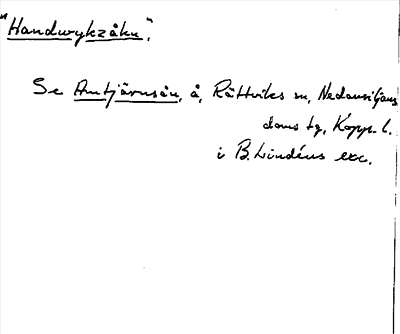 "Handwykzåkn".
Se Antjärnsån, å, Rättviks sn, Nedansiljans
doms tg, Kopp. l.
i B. Lindéns exc.